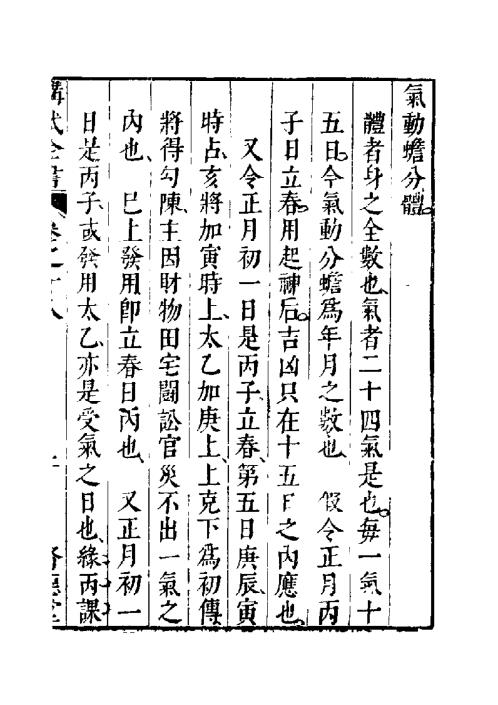 氣動蟾分體
體者身之全數也氣者二十四氣是也每一氣十
五日今氣動分蟾爲年月之數也　假令正月丙
子日立春用起神后吉凶只在十五日之內應也
又令正月初一日是丙子立春第五日庚辰寅
時占亥將加寅時上太乙加庚上上克下爲初傳
將得勾陳主因財物田宅鬪訟官災不出一氣之
內也　巳上發用卽立春日丙也　又正月初一
日是丙子或發用太乙亦是受氣之日也緣丙課
武全書　卷之十八